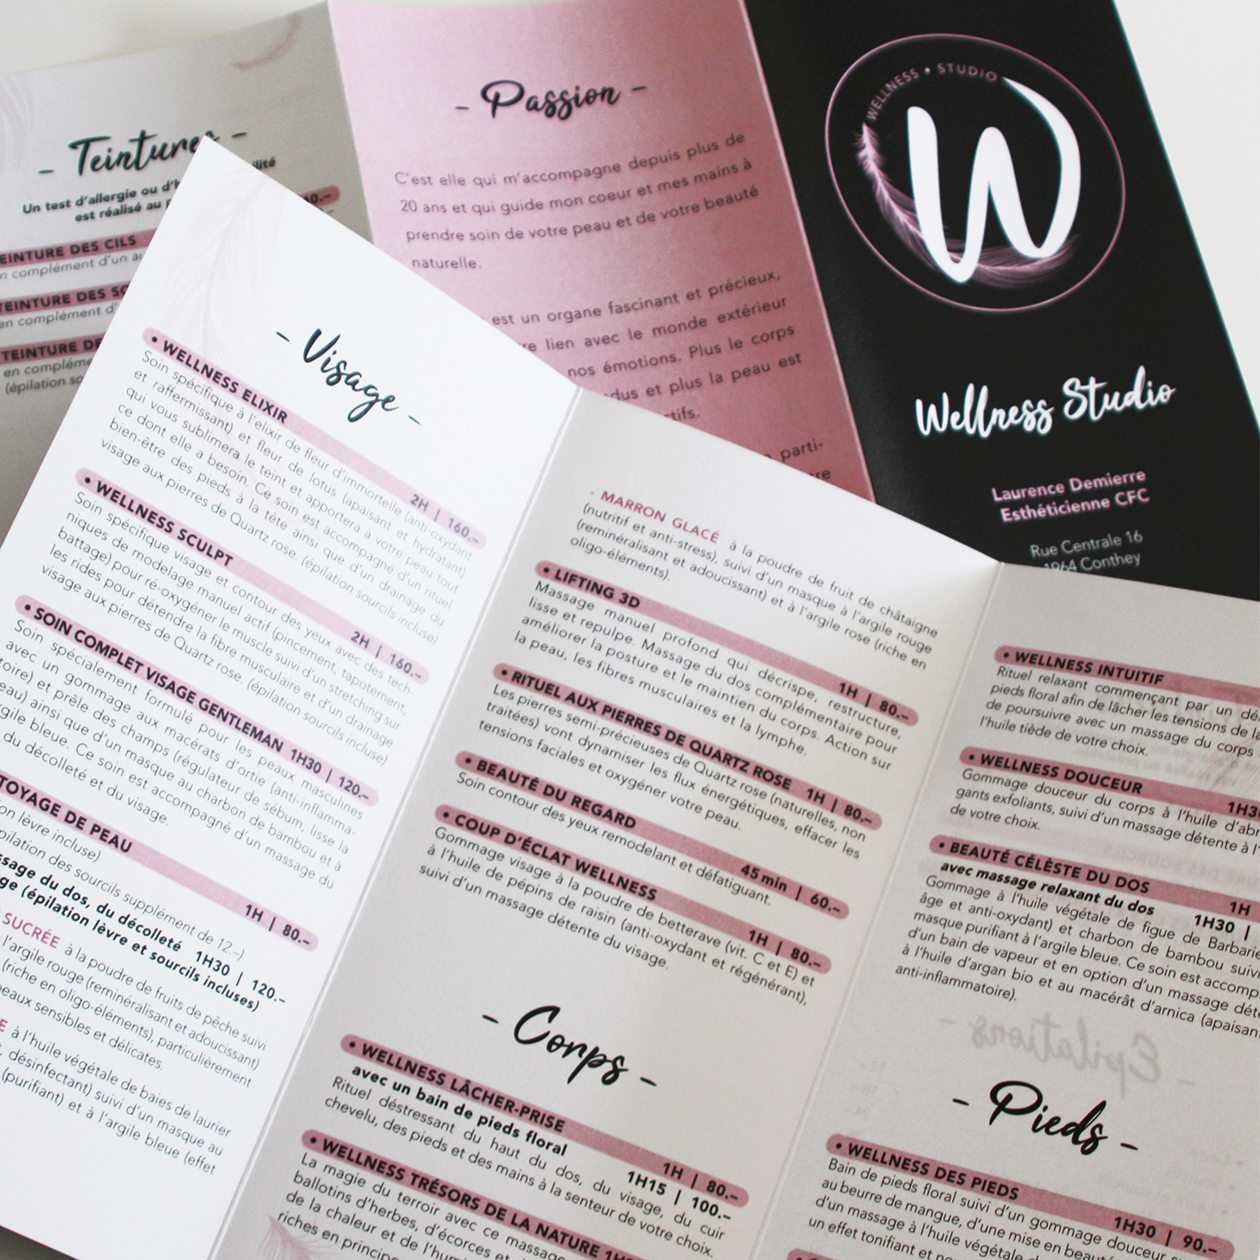 - Teintures -
Un test d'allergie ou d'h
ilité
est réalisé au p
0.–
EINTURE DES CILS
en complément d'un a
TEINTURE DES SO
en complément d'
TEINTURE DE
en compléme
(épilation so
- Passion -
C'est elle qui m'accompagne depuis plus de
20 ans et qui guide mon coeur et mes mains à
prendre soin de votre peau et de votre beauté
naturelle.
est un organe fascinant et précieux,
re lien avec le monde extérieur
nos émotions. Plus le corps
dus et plus la peau est
tifs.
parti-
re
WELLNESS • STUDIO
W
Wellness Studio
Laurence Demierre
Esthéticienne CFC
Rue Centrale 16
1964 Conthey
- Visage -
• WELLNESS ELIXIR 2H | 160.–
Soin spécifique à l'élixir de fleur d'immortelle (anti-oxydant
et raffermissant) et fleur de lotus (apaisant et hydratant)
qui vous sublimera le teint et apportera à votre peau tout
ce dont elle a besoin. Ce soin est accompagné d'un rituel
bien-être des pieds à la tête ainsi que d'un drainage du
visage aux pierres de Quartz rose. (épilation sourcils incluse)
• WELLNESS SCULPT 2H | 160.–
Soin spécifique visage et contour des yeux avec des tech-
niques de modelage manuel actif (pincement, tapotement,
battage) pour ré-oxygéner le muscle suivi d'un stretching sur
les rides pour détendre la fibre musculaire et d'un drainage
visage aux pierres de Quartz rose. (épilation sourcils incluse)
• SOIN COMPLET VISAGE GENTLEMAN 1H30 | 120.–
Soin spécialement formulé pour les peaux masculines
avec un gommage aux macérats d'ortie (anti-inflamma-
toire) et prêle des champs (régulateur de sébum, lisse la
eau) ainsi que d'un masque au charbon de bambou et à
rgile bleue. Ce soin est accompagné d'un massage du
du décolleté et du visage.
TOYAGE DE PEAU 1H | 80.–
on lèvre incluse)
pilation des sourcils supplément de 12.–)
ssage du dos, du décolleté 1H30 | 120.–
ge (épilation lèvre et sourcils incluses)
SUCRÉE à la poudre de fruits de pêche suivi
l'argile rouge (reminéralisant et adoucissant)
(riche en oligo-éléments), particulièrement
eaux sensibles et délicates.
E à l'huile végétale de baies de laurier
, désinfectant) suivi d'un masque au
(purifiant) et à l'argile bleue (effet
- MARRON GLACÉ à la poudre de fruit de châtaigne
(nutritif et anti-stress), suivi d'un masque à l'argile rouge
(reminéralisant et adoucissant) et à l'argile rose (riche en
oligo-éléments).
• LIFTING 3D 1H | 80.–
Massage manuel profond qui décrispe, restructure,
lisse et repulpe. Massage du dos complémentaire pour
améliorer la posture et le maintien du corps. Action sur
la peau, les fibres musculaires et la lymphe.
• RITUEL AUX PIERRES DE QUARTZ ROSE 1H | 80.–
Les pierres semi-précieuses de Quartz rose (naturelles, non
traitées) vont dynamiser les flux énergétiques, effacer les
tensions faciales et oxygéner votre peau.
• BEAUTÉ DU REGARD 45 min | 60.–
Soin contour des yeux remodelant et défatiguant.
• COUP D'ÉCLAT WELLNESS 1H | 80.–
Gommage visage à la poudre de betterave (vit. C et E) et
à l'huile de pépins de raisin (anti-oxydant et régénérant),
suivi d'un massage détente du visage.
- Corps -
• WELLNESS LÂCHER-PRISE 1H | 80.–
avec un bain de pieds floral 1H15 | 100.–
Rituel déstressant du haut du dos, du visage, du cuir
chevelu, des pieds et des mains à la senteur de votre choix.
• WELLNESS TRÉSORS DE LA NATURE 1H
La magie du terroir avec ce massage
ballotins d'herbes, d'écorces et
de la chaleur et de l'hum
riches en principe
• WELLNESS INTUITIF
Rituel relaxant commençant par un
pieds floral afin de lâcher les tensions de la
de poursuivre avec un massage du corps
l'huile tiède de votre choix.
• WELLNESS DOUCEUR 1H3
Gommage douceur du corps à l'huile d'ab
gants exfoliants, suivi d'un massage détente à l'
de votre choix.
• BEAUTÉ CÉLÈSTE DU DOS 1H
avec massage relaxant du dos 1H30 |
Gommage à l'huile végétale de figue de Barbarie
âge et anti-oxydant) et charbon de bambou suivi
masque purifiant à l'argile bleue. Ce soin est accomp
d'un bain de vapeur et en option d'un massage déte
à l'huile d'argan bio et au macérât d'arnica (apaisan
anti-inflammatoire).
- Pieds -
• WELLNESS DES PIEDS 1H30 | 90.–
Bain de pieds floral suivi d'un gommage douceur
au beurre de mangue, d'une mise en beauté
d'un massage à l'huile végétale d
un effet tonifiant et